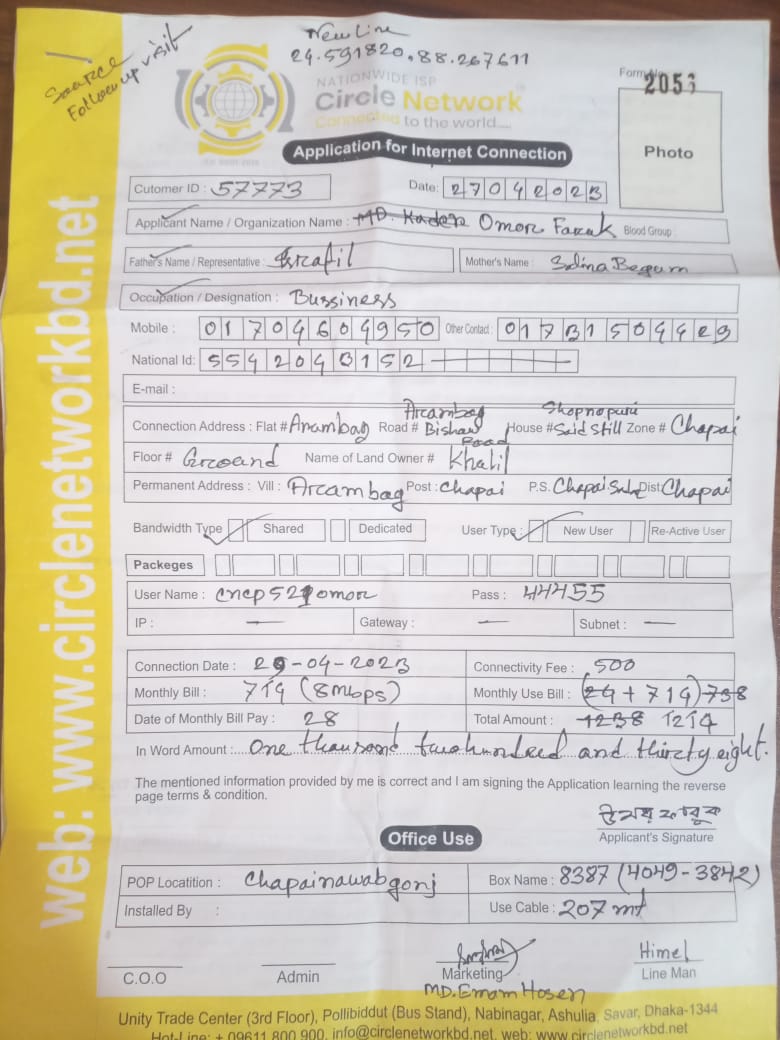 New Line
24.591820, 88.267611
Source
Followup visit
NATIONWIDE ISP
Circle Network
Connected to the world....
Form No
2053
Photo
Application for Internet Connection
Cutomer ID : 57773
Date: 27042023
Applicant Name / Organization Name : MD. Kader Omor Faruk Blood Group :
Father's Name / Representative : Israfil Mother's Name : Selina Begum
Occupation / Designation : Bussiness
Mobile : 01704604950 Other Contact : 01731504423
National Id: 5542043152
E-mail :
Connection Address : Flat # Arambag Road # Arambag Bishaw Road House # Shopnopuri Said Still Zone # Chapai
Floor # Ground Name of Land Owner # Khalil
Permanent Address : Vill : Arambag Post : Chapai P.S. Chapai Sadar Dist Chapai
Bandwidth Type Shared Dedicated User Type : New User Re-Active User
Packeges
User Name : cncp521omor Pass : 44455
IP : — Gateway : — Subnet : —
Connection Date : 29-04-2023 Connectivity Fee : 500
Monthly Bill : 714 (8mbps) Monthly Use Bill : (24 + 714) 738
Date of Monthly Bill Pay : 28 Total Amount : 1238 1214
In Word Amount : One thousand two hundred and thirty eight.
The mentioned information provided by me is correct and I am signing the Application learning the reverse
page terms & condition.
ওমর ফারুক
Applicant's Signature
Office Use
POP Locatition : Chapainawabgonj Box Name : 8387 (4049-3842)
Installed By : Use Cable : 207 mt
C.O.O Admin Marketing Himel
Line Man
MD. Emam Hosen
Unity Trade Center (3rd Floor), Pollibiddut (Bus Stand), Nabinagar, Ashulia, Savar, Dhaka-1344
Hot-Line: + 09611 800 900, info@circlenetworkbd.net, web: www.circlenetworkbd.net
web: www.circlenetworkbd.net